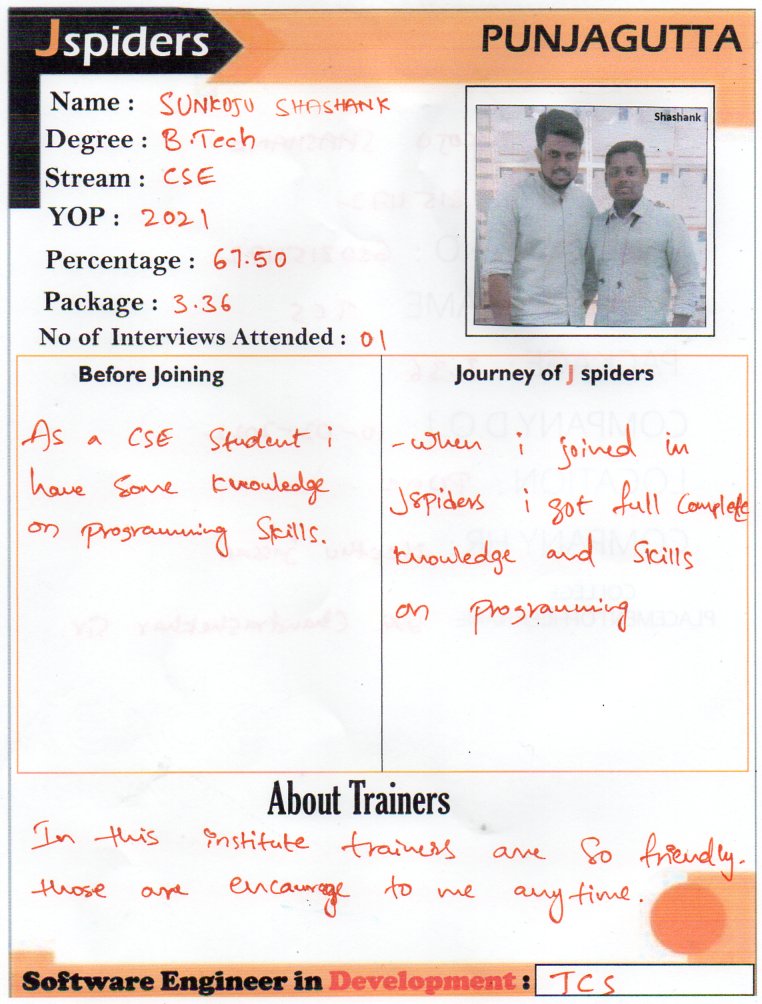 Jspiders
PUNJAGUTTA
Name : SUNKOJU SHASHANK
Degree : B.Tech
Stream : CSE
YOP : 2021
Percentage : 67.50
Package : 3.36
No of Interviews Attended : 01
Shashank
Before Joining
As a CSE Student i
have Some knowledge
on programming Skills.
Journey of J spiders
-when i joined in
Jspiders i got full Complete
knowledge and Skills
on programming
About Trainers
In this institute trainers are So friendly.
those are encaurage to me anytime.
Software Engineer in Development : TCS